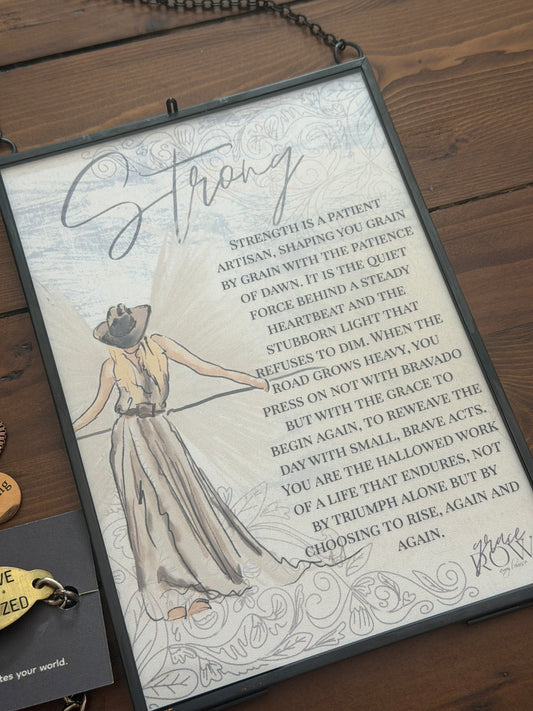 Strong
STRENGTH IS A PATIENT
ARTISAN, SHAPING YOU GRAIN
BY GRAIN WITH THE PATIENCE
OF DAWN. IT IS THE QUIET
FORCE BEHIND A STEADY
HEARTBEAT AND THE
STUBBORN LIGHT THAT
REFUSES TO DIM. WHEN THE
ROAD GROWS HEAVY, YOU
PRESS ON NOT WITH BRAVADO
BUT WITH THE GRACE TO
BEGIN AGAIN, TO REWEAVE THE
DAY WITH SMALL, BRAVE ACTS.
YOU ARE THE HALLOWED WORK
OF A LIFE THAT ENDURES, NOT
BY TRIUMPH ALONE BUT BY
CHOOSING TO RISE, AGAIN AND
AGAIN.
grace
ROW